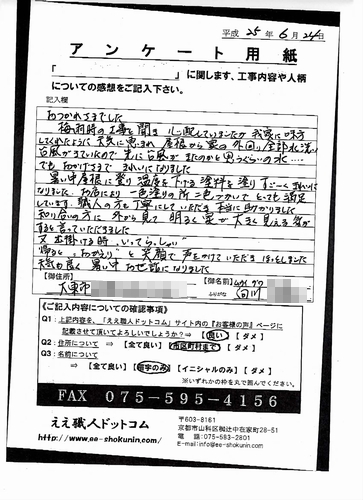 平成 25 年 6 月 24 日
アンケート用紙
「 」に関します、工事内容や人柄
についての感想をご記入下さい。
記入欄
おつかれさまでした
梅雨時の工事と聞き 心配していましたが 我家に味方
してくれたようで 天気に恵まれ 屋根から家の外回り全部水洗い
台風がきていたので 先に台風がきたのかと思うくらいの水・・・・
でも おかげさまで きれいになりました
暑い中屋根に登り 温度を下げる塗料を塗り すごーく きれいに
なりました お店により一色塗りの所 とっても満足
しています。職人の方も丁寧にしていただき 本当に助かりました
知り合いの方に 外から見て 明るく 家が大きく見える気が
すると言っていただきました
又 出掛ける時 、いってらっしゃい
帰ると 、おかえり と 笑顔で声をかけていただき ほっとしました
天気も良く 暑い中お世話になりました
【御住所】
大東市
【御名前】
ふりがな
《ご記入内容についての確認事項》
Q1：上記内容を、「ええ職人ドットコム」サイト内の『お客様の声』ページに
記載させて頂いてよろしいでしょうか？⇒【良い】【ダメ】
Q2：住所について ⇒【全て良い】【市区町村まで】【ダメ】
Q3：名前について
⇒【全て良い】【苗字のみ】【イニシャルのみ】【ダメ】
※いずれかの枠を丸で囲んでください。
FAX 075-595-4156
ええ職人ドットコム
http://www.ee-shokunin.com/
〒603-8161
京都市山科区椥辻中在家町28-51
電話：075-583-2801
E-mail：info@ee-shokunin.com